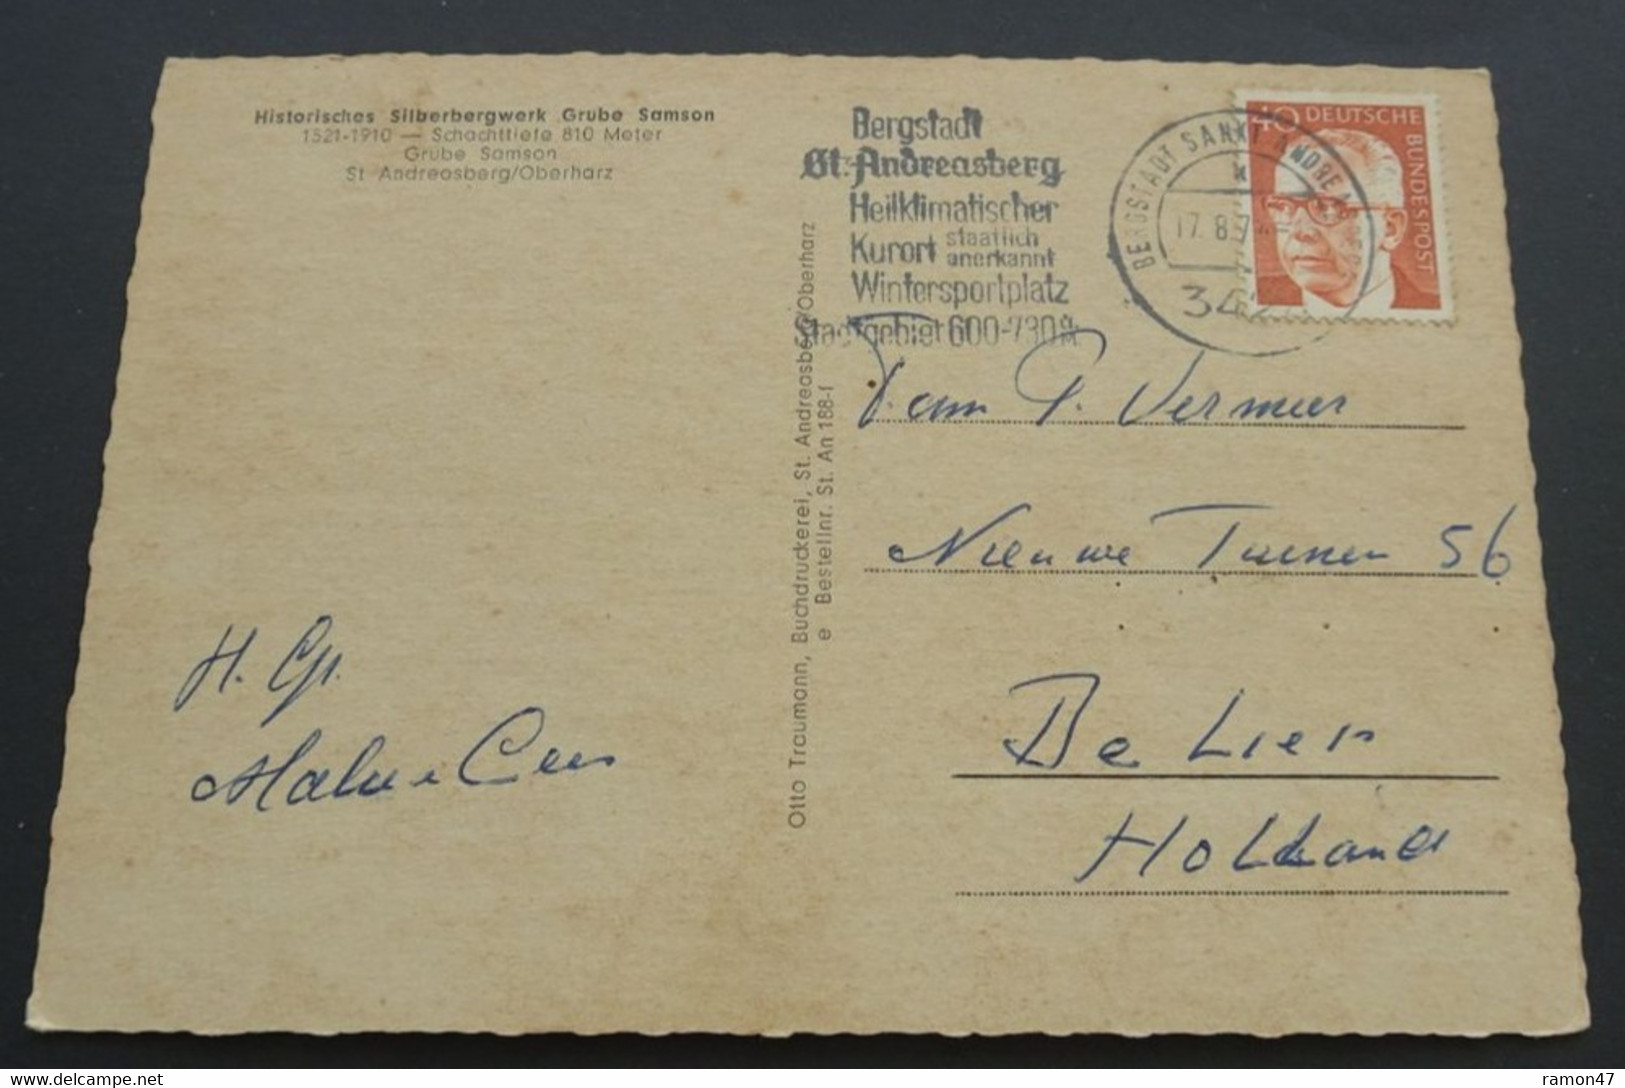 Historisches Silberbergwerk Grube Samson
1521-1910 — Schachttiefe 810 Meter
Grube Samson
St Andreasberg/Oberharz
Bergstadt
St. Andreasberg
Heilklimatischer
Kurort staatlich anerkannt
Wintersportplatz
Stadtgebiet 600-730 M
BERGSTADT SANKT ANDREASBERG
17. 8. 7
342
40 DEUTSCHE BUNDESPOST
Otto Traumann, Buchdruckerei, St. Andreasberg/Oberharz
e Bestellnr. St. An 188-f
Fam P. Vermeer
Nieuwe 56
De Lier
Holland
H. Gr.
Cees
ramon47